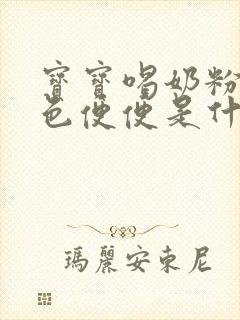 寶寶喝奶粉
色便便是什
瑪麗安東尼